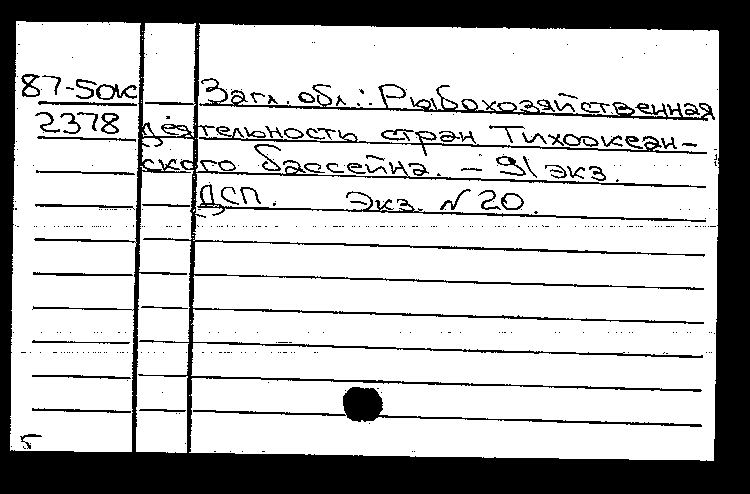 87-5ок Загл. обл.: Рыбохозяйственная
2378 деятельность стран Тихоокеан-
ского бассейна. – 91 экз.
ДСП. Экз. № 20.